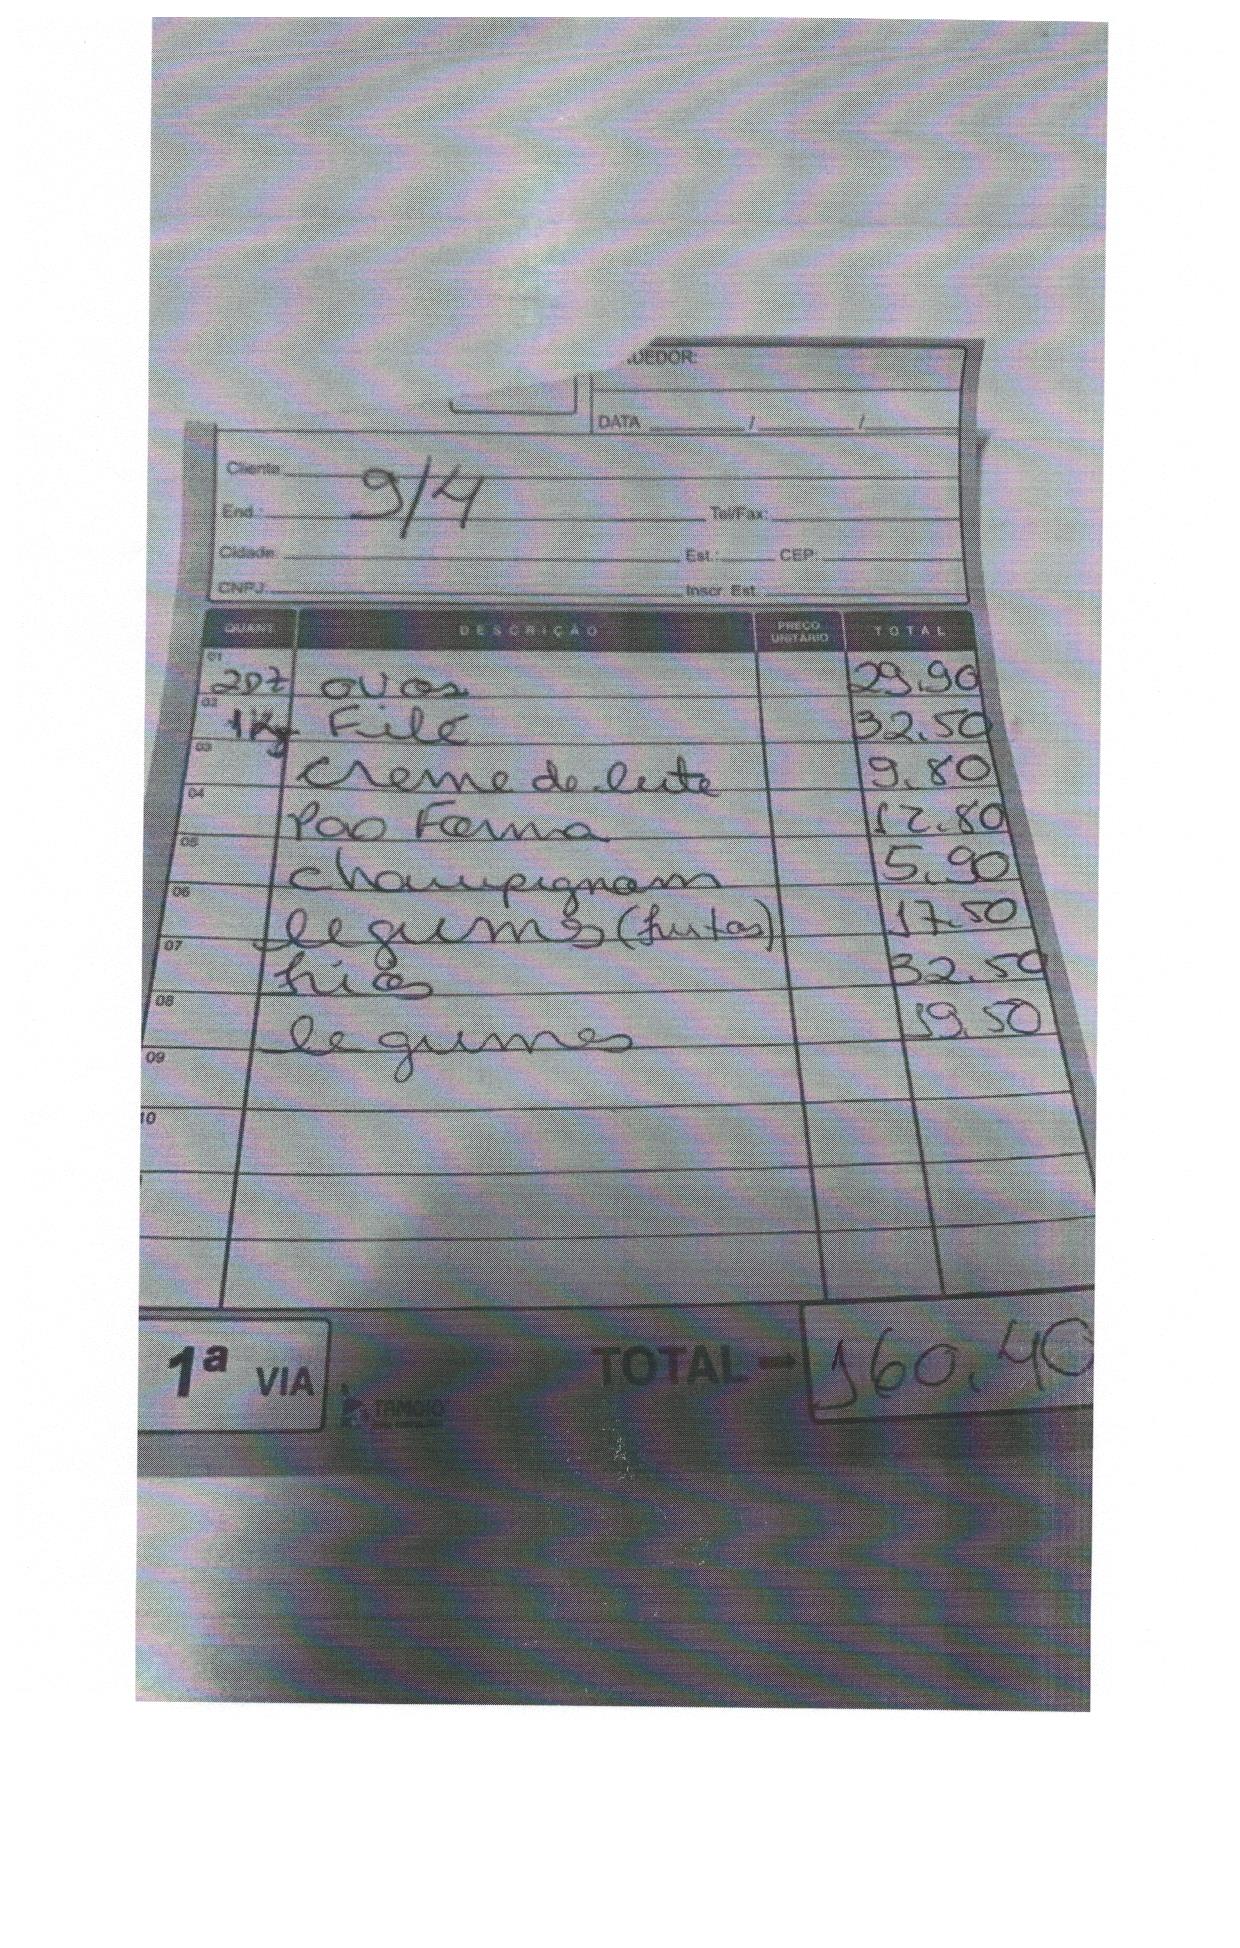 DEDOR:
DATA ____/____/____
Cliente:
9/4
End.: Tel/Fax:
Cidade: Est.: CEP:
CNPJ: Inscr. Est.
QUANT. DESCRIÇÃO PREÇO UNITÁRIO TOTAL
01 2DZ ovos 29.90
02 1Kg Filé 32.50
03 creme de leite 9.80
04 Pao Forma 12.80
05 champignom 5.90
06 legumes (frutas) 17.50
07 frios 32.50
08 legumes 19.50
09
10
1ª VIA TAMOIO TOTAL → 160.40